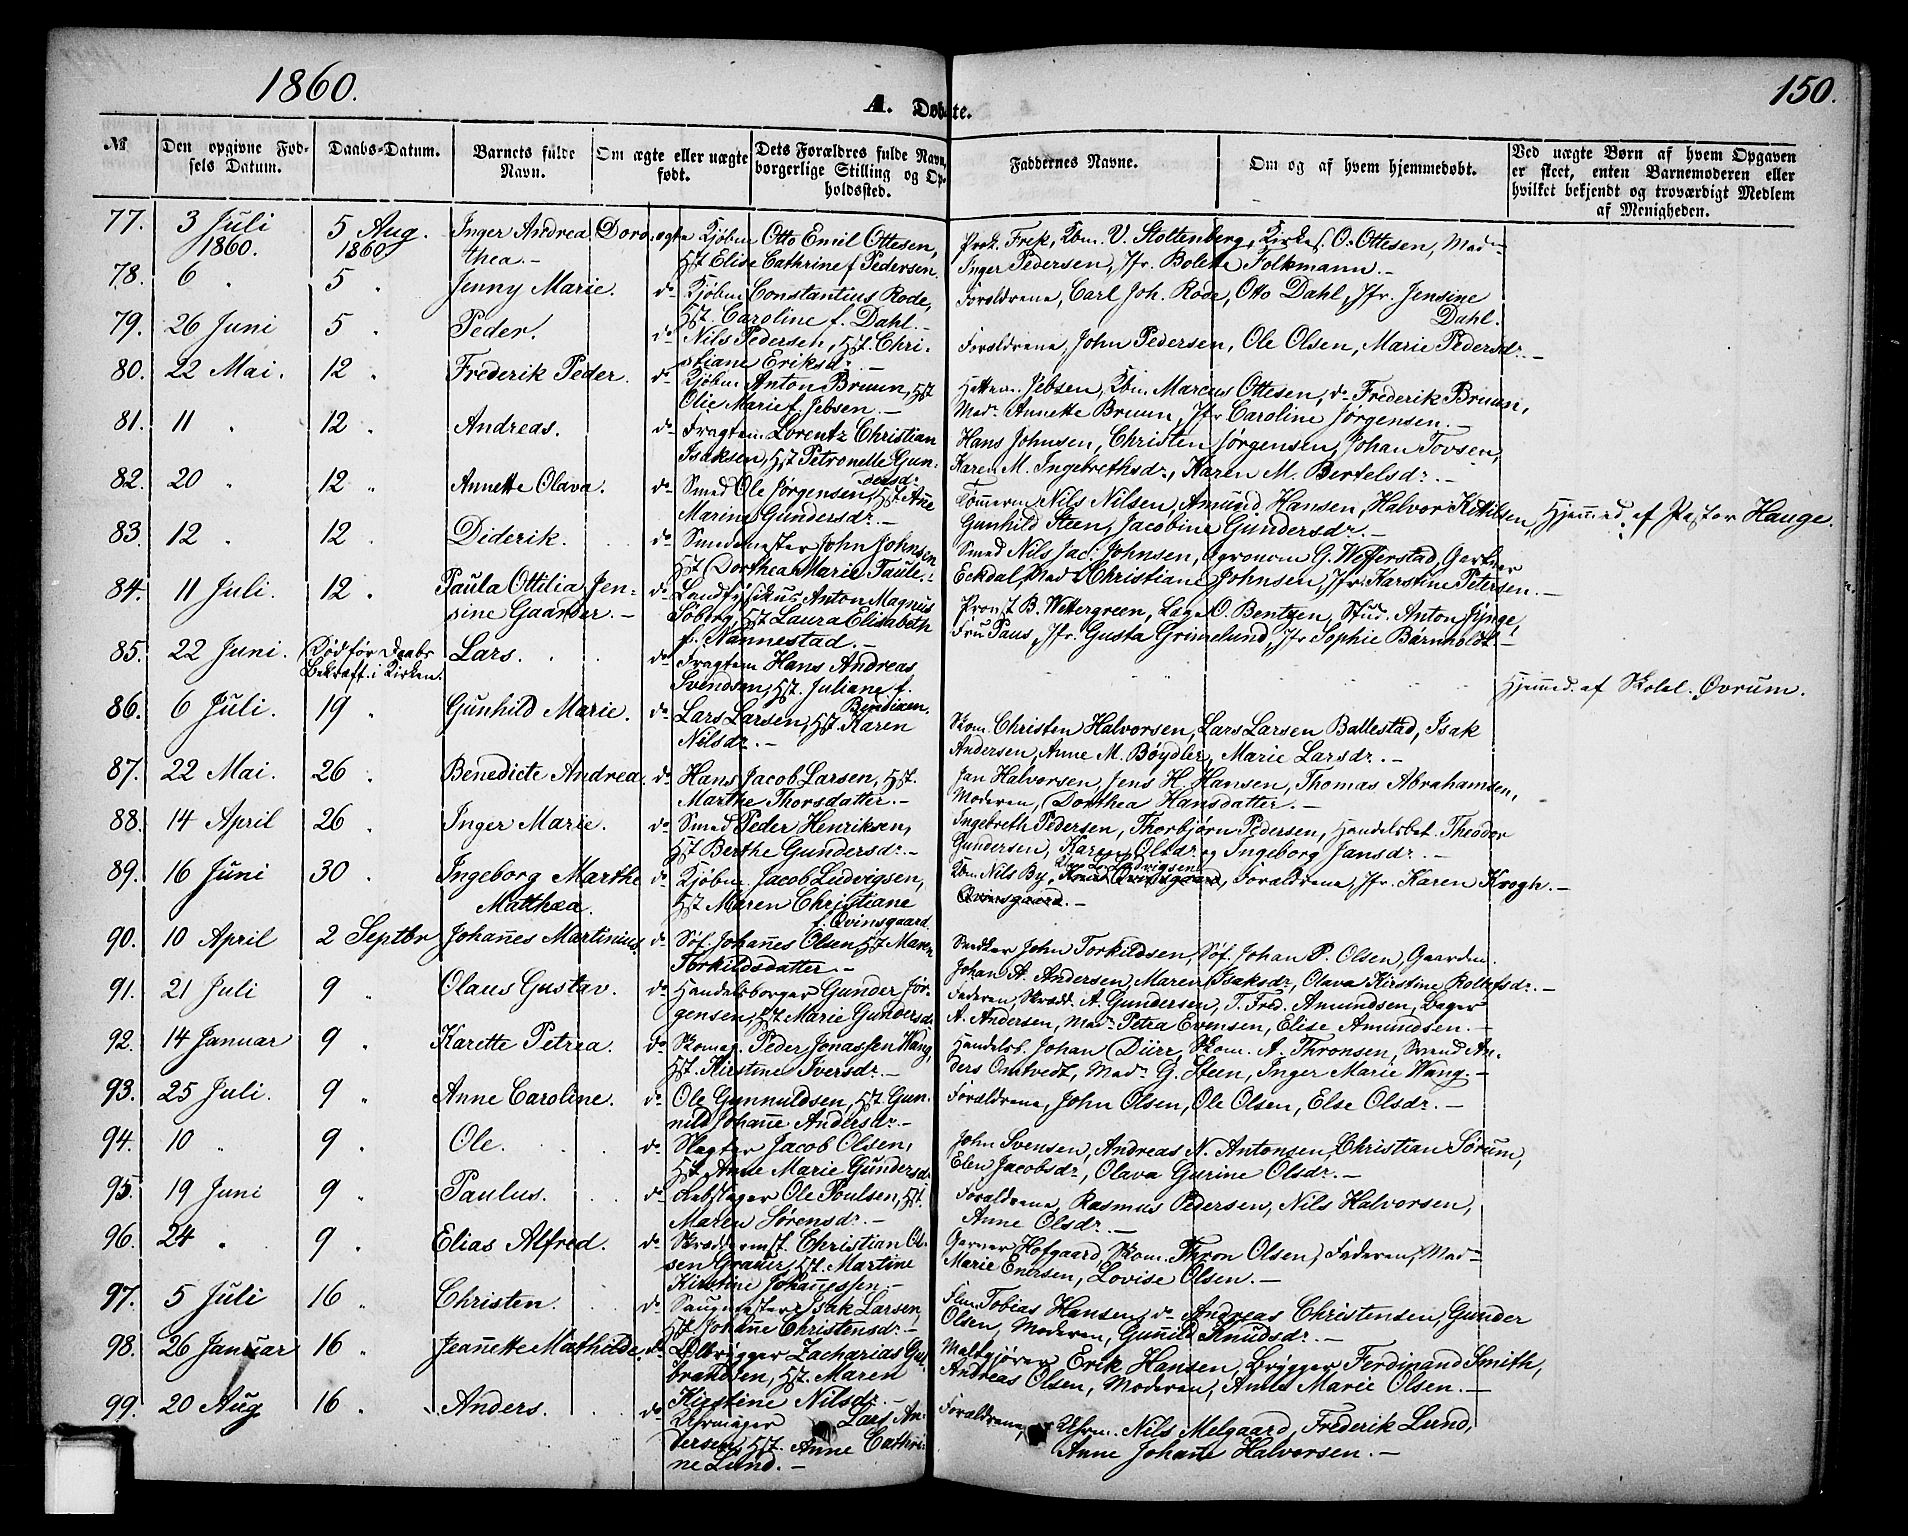 1860.
150.
A. Døbte.
No
Den opgivne Fød-
sels Datum.
Daabs-Datum.
Barnets fulde
Navn.
Om ægte eller uægte
født.
Dets Forældres fulde Navn,
borgerlige Stilling og Op-
holdssted.
Faddernes Navne.
Om og af hvem hjemmedøbt.
Ved uægte Børn af hvem Opgaven
er skeet, enten Barnemoderen eller
hvilket bekjendt og troværdigt Medlem
af Menigheden.
77. 3 Juli 1860. 5 Aug. 1860 Inger Andrea Doro-
thea. — ægte Kjøbm Otto Emil Ottesen,
Hst Elise Cathrine f. Pedersen.
Prok. Frek, Kbm. V. Stoltenberg, Kirkes. O. Ottesen, Mad
Inger Pedersen, Jfr. Bolette Folkmann. —
78. 6 " 5 " Jenny Marie. do Kjøbm Constantius Rode,
Hst. Caroline f. Dahl. —
Forældrene, Carl Joh. Rode, Otto Dahl, Jfr. Jensine
Dahl.
79. 26 Juni 5 " Peder. do Nils Pedersen, Hst. Chri-
stiane Eriksdr. —
Forældrene, John Pedersen, Ole Olsen, Marie Pedersdr. —
80. 22 Mai. 12 " Frederik Peder. do Kjøbm Anton Bruun, Hst
Olie Marie f. Jebsen. —
Jebsen, Kbm. Marcus Ottesen, do Frederik Bruun,
Mad. Annette Bruun, Jfr Caroline Jørgensen. —
81. 11 " 12 " Andreas. do Fragtem Lorentz Christian
Isaksen, Hst Petronelle Gun-
dersdr.
Hans Johnsen, Christen Jørgensen, Johan Tovsen,
Karen M. Ingebrethsdr., Karen M. Bertelsdr. —
82. 20 " 12 " Annette Olava. do Smed Ole Jørgensen, Hst Ane
Marine Gundersdr. —
Tømmerm Nils Nilsen, Amund Hansen, Halvor Kittilsen,
Gunhild Steen, Jacobine Gundersdr. —
Hjemmed. af Pastor Hauge.
83. 12 " 12 " Diderik. do Smedemester John Johnsen
Hst Dorthea Marie Taule. —
Smed Nils Jac. Johnsen, Agronom G. Wefferstad, Gartner
Eckdal, Mad Christiane Johnsen, Jfr Karstine Petersen. —
84. 11 Juli. 12 " Paula Ottilia Jen-
sine Gaarder. — do Landfysikus Anton Magnus
Søberg, Hst Laura Elisabeth
f. Nannestad. —
Provst B. Wettergreen, Læge O. Bentzen, Stud. Anton Jynge,
Fru Paus, Jfr. Gusta Grimelund, Jfr Sophie Barnholdt. —
85. 22 Juni. Død før Daabs
Bekræft. i Kirken. Lars. do Fragtem Hans Andreas
Svendsen, Hst. Juliane f.
Bendixen.
Hjemmed. af Skolel. Øvrum.
86. 6 Juli. 19 " Gunhild Marie. do Lars Larsen, Hst. Karen
Nilsdr. —
Skom. Christen Halvorsen, Lars Larsen Ballestad, Isak
Andersen, Anne M. Bøydler, Marie Larsdr. —
87. 22 Mai. 26 " Benedicte Andrea. do Hans Jacob Larsen, Hst.
Marthe Thorsdatter. —
Jan Halvorsen, Jens H. Hansen, Thomas Abrahamsen,
Moderen, Dorthea Hansdatter. —
88. 14 April 26 " Inger Marie. do Smed Peder Henriksen,
Hst Berthe Gundersdr. —
Ingebreth Pedersen, Thorbjørn Pedersen, Handelsbet. Theodor
Gundersen, Karen Olsdr og Ingeborg Jansdr. —
89. 16 Juni 30 " Ingeborg Marthe
Matthæa. do Kjøbm. Jacob Ludvigsen,
Hst Maren Christiane
f. Qvinsgaard.
Kbm. Nils By, Ludvigsen, Forældrene, Jfr. Karen Krogh. —
Qvinsgaard. —
90. 10 April 2 Septbr Johannes Martinius. do Søf. Johannes Olsen, Hst Maren
Torkildsdatter —
Snedker John Torkildsen, Søf. Johan P. Olsen, Gaardm.
Johan A. Andersen, Maren Isaksdr., Olava Kirstine Rolfsdr. —
91. 21 Juli 9 " Olaus Gustav. do Handelsborger Gunder Jør-
gensen, Hst Marie Gundersdr.
Faderen, Skræd. A. Gundersen, T. Fred. Amundsen, Bager
A. Andersen, Mad. Petra Evensen, Elise Amundsen. —
92. 14 Januar 9 " Karette Petrea. do Skomag. Peder Jonassen Wang,
Hst. Kirstine Iversdr. —
Handelsb. Johan Dürr, Skom. A. Thronsen, Svend An-
ders Omtvedt, Mad. G. Steen, Inger Marie Wang. —
93. 25 Juli. 9 " Anne Caroline. do Ole Gunnuldsen, Hst. Gun-
nild Johanne Andersdr. —
Forældrene, John Olsen, Ole Olsen, Else Olsdr. —
94. 10 " 9 " Ole. do Slagter Jacob Olsen,
Hst Anne Marie Gundersdr.
John Svensen, Andreas N. Antonsen, Christian Sørum,
Elen Jacobsdr., Olava Gurine Olsdr. —
95. 19 Juni 9 " Paulus. do Rebslager Ole Poulsen, Hst.
Maren Sørensdr. —
Forældrene, Rasmus Pedersen, Nils Halvorsen,
Anne Olsdr. —
96. 24 " 9 " Elias Alfred. do Skræddermst. Christian Ol-
sen Grauer, Hst. Martine
Kirstine Johannessen. —
Garver Hofgaard, Skom. Thron Olsen, Faderen, Mad
Marie Enersen, Lovise Olsen. —
97. 5 Juli 16 " Christen. do Saugmester Isak Larsen,
Hst Johanne Christensdr. —
Flm. Tobias Hansen, do Andreas Christensen, Gunder
Olsen, Moderen, Gunnild Knudsdr. —
98. 26 Januar 16 " Jeanette Mathilde. do Ølbrygger Zacharias Gul-
brandsen, Hst. Maren
Kirstine Nilsdr. —
Maltgjører Erik Hansen, Brygger Ferdinand Smith,
Andreas Olsen, Moderen, Anne Marie Olsen. —
99. 20 Aug 16 " Anders. do Uhrmager Lars An-
dersen, Hst. Anne Cathri-
ne Lund. —
Forældrene, Uhrm. Nils Melgaard, Frederik Lund,
Anne Johanne Halvorsen. —